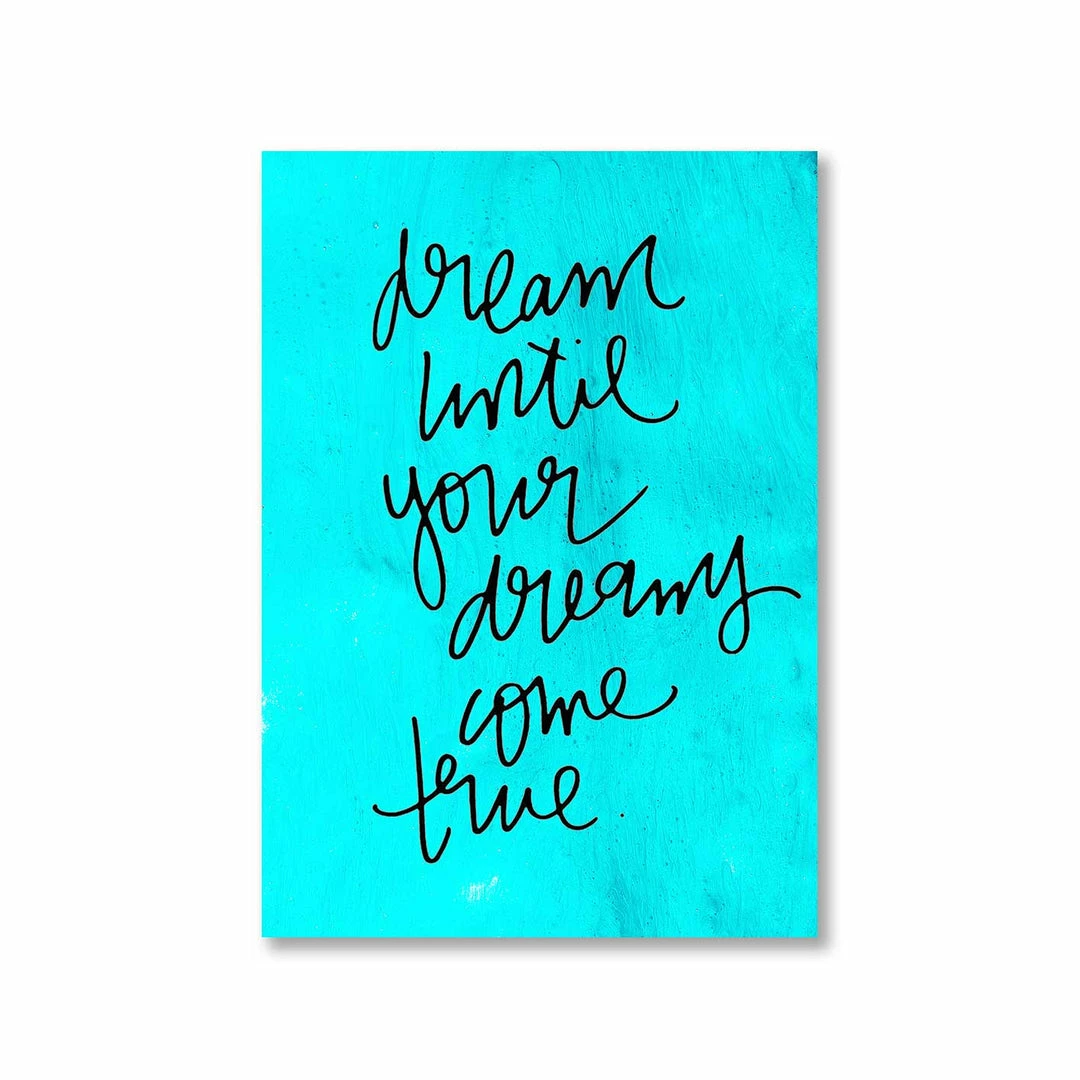 dream
until
your
dreams
come
true.